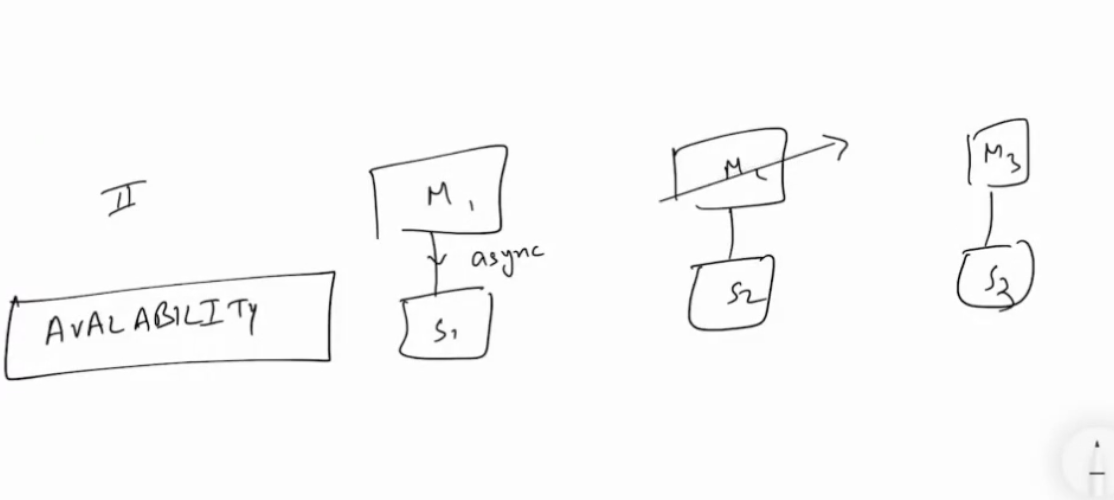 II
AVALABILITY
M1
async
S1
M2
S2
M3
S3